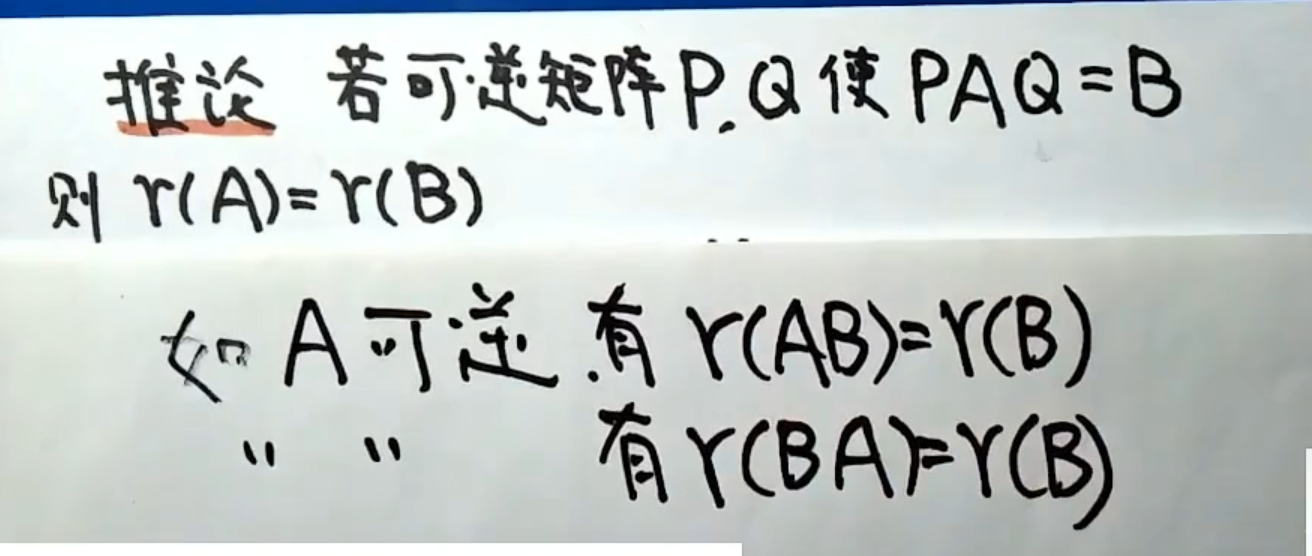 推论 若可逆矩阵P.Q使PAQ=B
则 r(A)=r(B)
如A可逆.有 r(AB)=r(B)
〃 〃 有r(BA)=r(B)